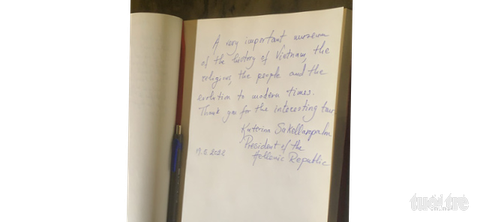 A very important museum
of the history of Vietnam, the
religion, the people and the
evolution to modern times.
Thank you for the interesting tour
Katerina Sakellaropoulou
President of the
Hellenic Republic
tuoi tre